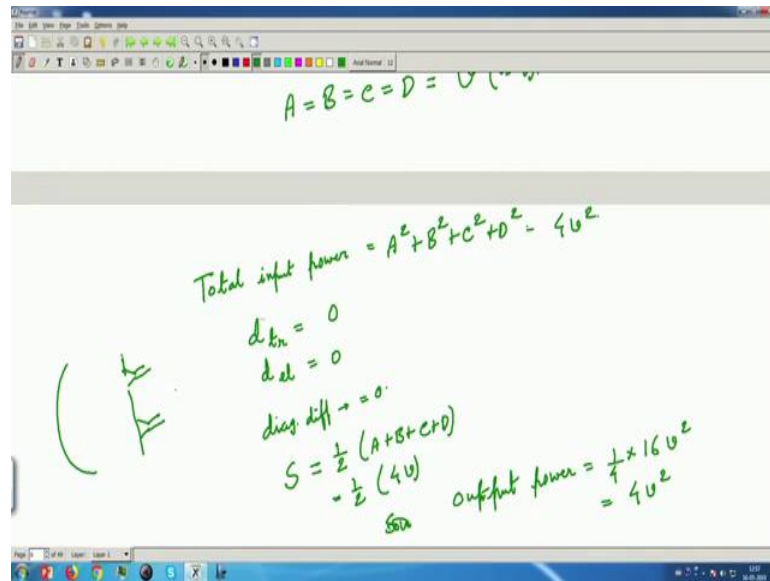 File Edit View Page Tools Options Help
Arial Normal 12
A = B = C = D = V
Total input power = A² + B² + C² + D² = 4v²
d tr = 0
d el = 0
diag. diff → = 0.
S = 1/2 (A+B+C+D)
= 1/2 (4v)
output power = 1/4 × 16 v²
= 4v²
Page of 49 Layer: Layer 1
12:57